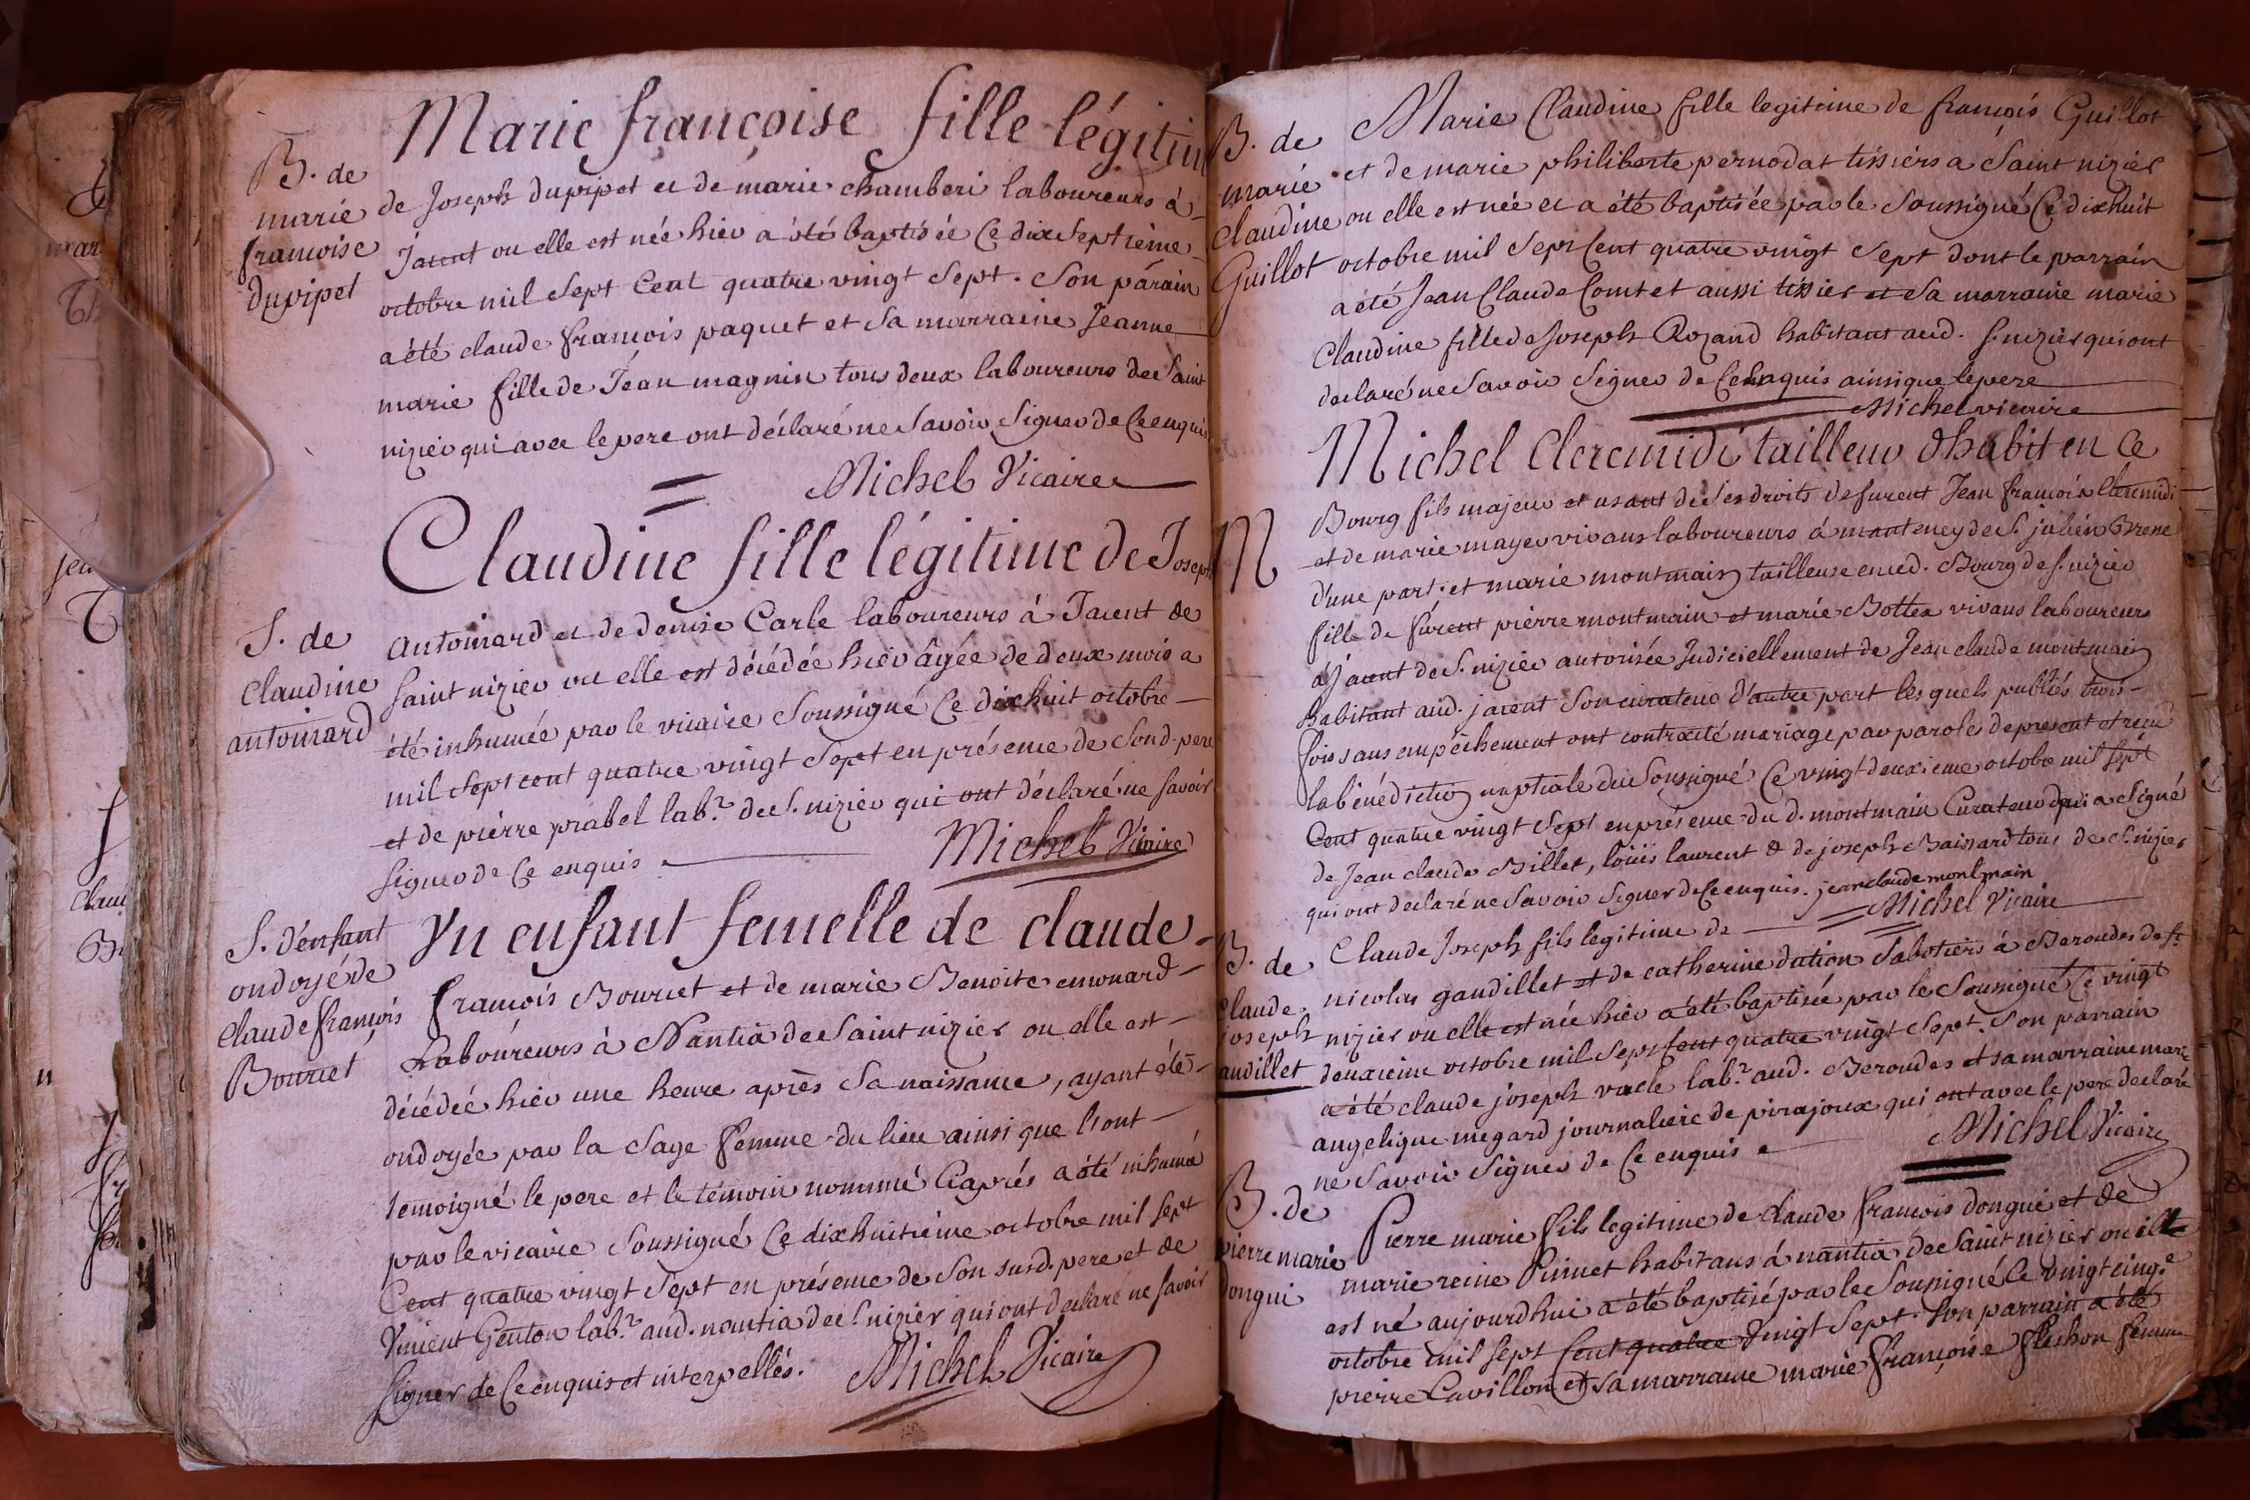 B. de
marie
francoise
dupipet
Marie françoise fille légitim
de Joseph dupipet et de marie chamberi laboureurs à
Jacent ou elle est née hier a été baptisée Ce dixseptième
octobre mil Sept Cent quatre vingt Sept. Son párain
a été claude françois paquet et sa marraine Jeanne
marie fille de Jean magnin tous deux laboureurs de Saint
nizier qui avec le pere ont déclaré ne Savoir Signer de Ce enquis
Michel Vicaire
S. de
Claudine
antoinard
Claudine fille légitime de Joseph
antoinard et de denise Carle laboureurs à Jacent de
Saint nizier ou elle est décédée hier âgée de deux mois a
été inhumée par le vicaire Soussigné Ce dixhuit octobre
mil Sept cent quatre vingt Sept en présence de Sond. pere
et de piérre prabel lab.r de S. nizier qui ont déclaré ne savoir
signer de Ce enquis
Michel Vicaire
S. d'enfant
ondoyé de
Claude françois
Bouriet
Yn enfant femelle de claude
françois Bouriet et de marie Benoite emonard
Laboureurs à Nantia de Saint nizier ou elle est
décédée hier une heure après sa naissance, ayant été
ondoyée par la Sage femme du lieu ainsi que l'ont
temoigné le pere et le témoin nommé Ciaprés a été inhumé
par le vicaire Soussigné Ce dixhuitième octobre mil Sept
Cent quatre vingt Sept en présence de Son susd. pere et de
Vincent Genton lab.r aud. nantia de S. nizier qui ont declaré ne savoir
signer de Ce enquis et interpellés. Michel Vicaire
B. de
marie
Claudine
Guillot
Marie Claudine fille legitime de françois Guillot
et de marie philiberte pernodat tissiers a Saint nizier
ou elle est née et a été baptisée par le Soussigné Ce dixhuit
octobre mil Sept Cent quatre vingt Sept dont le parrain
a été Jean Claude Comtet aussi tissier et Sa marraine marie
Claudine fille de Joseph Rozand habitant aud. S. nizier qui ont
declaré ne Savoir Signer de Ce enquis ainsi que le pere
Michel vicaire
M
Michel Cleremidi tailleur d'habit en Ce
Bourg fils majeur et usant de Ses droits de furent Jean françois Cleremidi
et de marie mayer vivans laboureurs à manteney de S. julien Brene
d'une part. et marie montmain tailleuse en ced. Bourg de S. nizier
fille de furent piérre montmain et marie Bottex vivans laboureurs
à Jacent de S. nizier autorisée Judiciellement de Jean claude montmain
habitant aud. jacent Son curateur d'autre part les quels publiés trois
fois sans empêchement ont contracté mariage par paroles de present et reçu
la bénédiction nuptiale du Soussigné Ce vingt deuxieme octobre mil Sept
Cent quatre vingt Sept en présence du d. montmain Curateur qui a Signé
de Jean claude Billet, loüis laurent & de joseph Baissard tous de S. nizier
qui ont declaré ne Savoir Signer de Ce enquis. jean claude montmain
Michel Vicaire
B. de
Claude
joseph
audillet
Claude Joseph fils legitime de
nicolas gaudillet et de catherine dution Sabotiers à Beroudes de S.
nizier ou elle est née hier a été baptisée par le Soussigné Ce vingt
deuxieme octobre mil Sept Cent quatre vingt Sept. Son parrain
a été claude joseph vacle lab.r aud. Beroudes et sa marraine marie
angelique megard journaliere de pirajoux qui ont avec le pere declaré
ne Savoir Signer de Ce enquis
Michel Vicaire
B. de
pierre marie
dongui
Pierre marie fils legitime de claude françois dongui et de
marie reine Puinet habitans à nantia de Saint nizier ou il
est né aujourdhui a été baptisé par le Soussigné Ce vingt cinq.e
octobre mil Sept Cent quatre vingt Sept. Son parrain a été
pierre Lavillon et Sa marraine marie françoise flichon femme